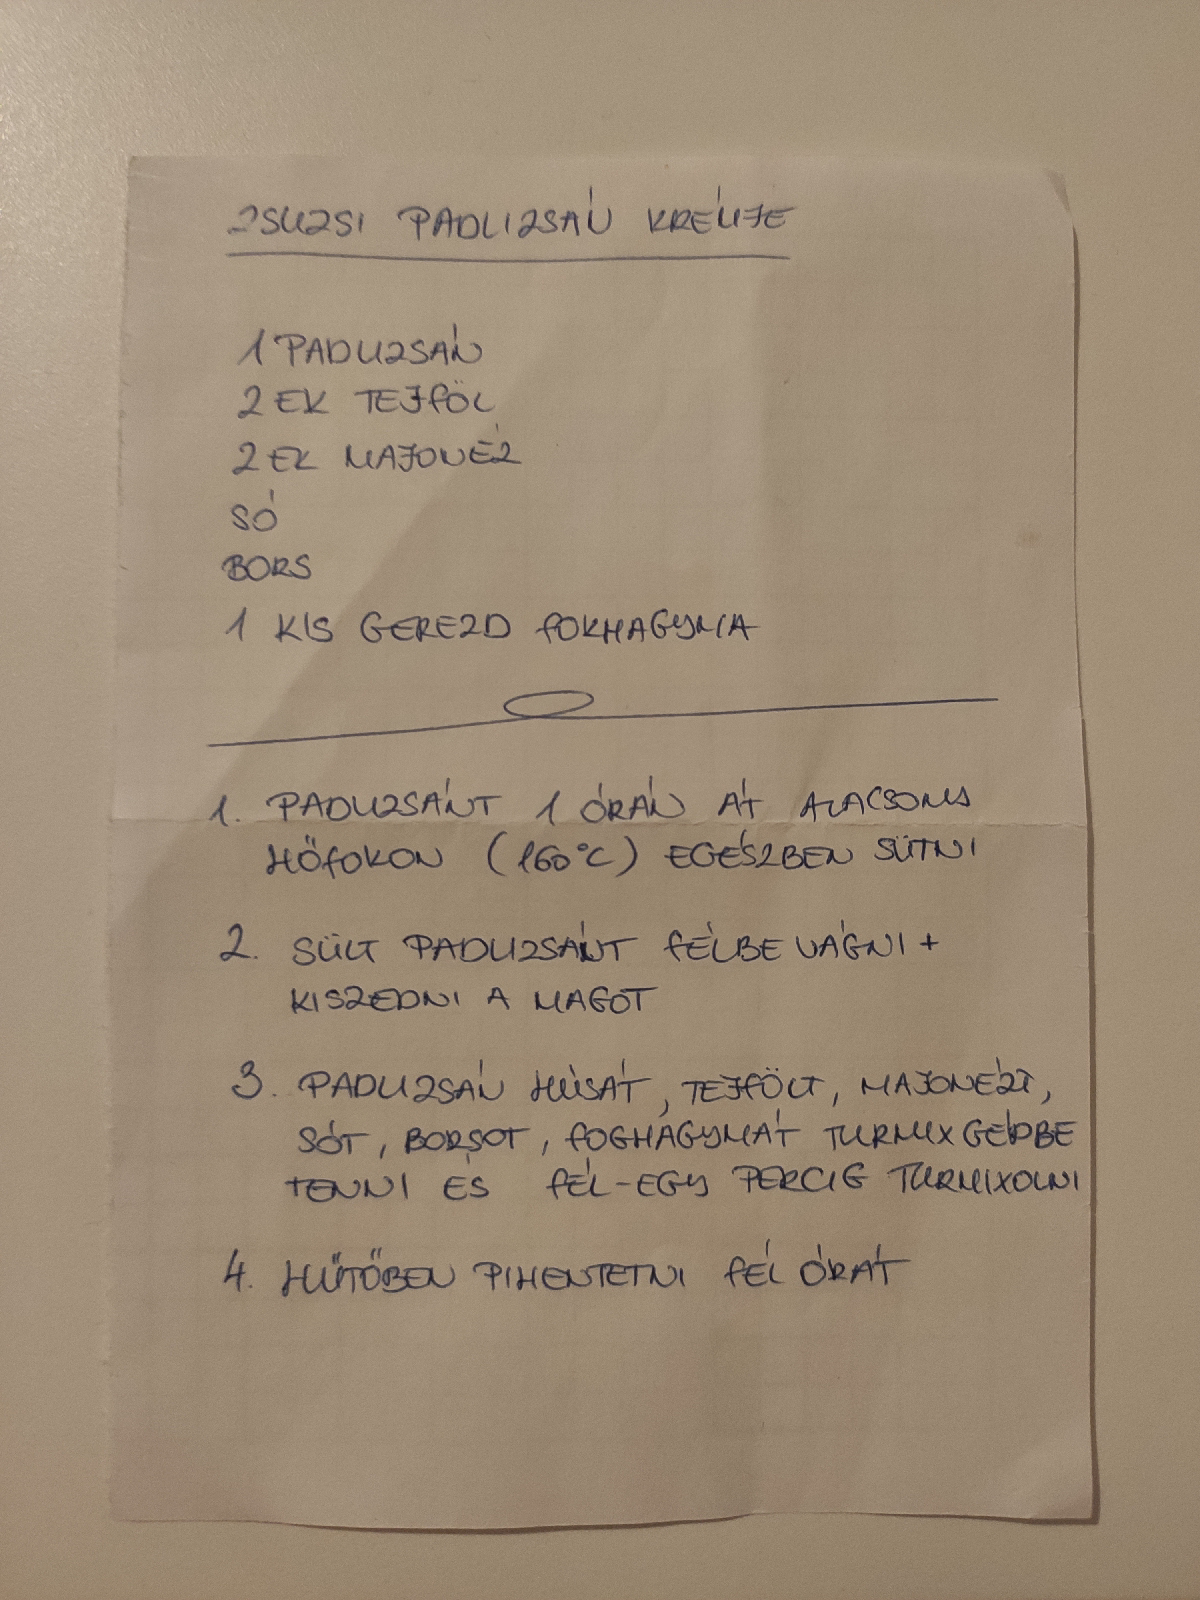 ZSUZSI PADLIZSÁN KRÉMJE
1 PADLIZSÁN
2 EK TEJFÖL
2 EK MAJONÉZ
SÓ
BORS
1 KIS GEREZD FOKHAGYMA
1. PADLIZSÁNT 1 ÓRÁN ÁT ALACSONY
HŐFOKON (160°C) EGÉSZBEN SÜTNI
2. SÜLT PADLIZSÁNT FÉLBE VÁGNI +
KISZEDNI A MAGOT
3. PADLIZSÁN HÚSÁT, TEJFÖLT, MAJONÉZT,
SÓT, BORSOT, FOGHAGYMÁT TURMIXGÉPBE
TENNI ÉS FÉL-EGY PERCIG TURMIXOLNI
4. HŰTŐBEN PIHENTETNI FÉL ÓRÁT